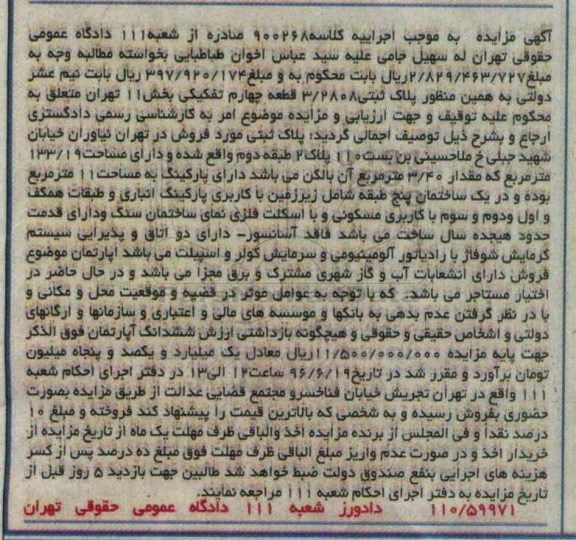 آگهی مزایده به موجب اجراییه کلاسه۹۰۰۲۶۸ صادره از شعبه۱۱۱ دادگاه عمومی
حقوقی تهران له سهیل جامی علیه سید عباس اخوان طباطبایی بخواسته مطالبه وجه به
مبلغ۲/۸۲۹/۴۶۳/۷۲۷ریال بابت محکوم به و مبلغ۳۹۷/۹۲۰/۱۷۴ ریال بابت نیم عشر
دولتی به همین منظور پلاک ثبتی۳/۲۸۰۸ قطعه چهارم تفکیکی بخش۱۱ تهران متعلق به
محکوم علیه توقیف و جهت ارزیابی و مزایده موضوع امر به کارشناسی رسمی دادگستری
ارجاع و بشرح ذیل توصیف اجمالی گردید: پلاک ثبتی مورد فروش در تهران نیاوران خیابان
شهید جبلی خ ملاحسینی بن بست۱۱۰ پلاک۲ طبقه دوم واقع شده و دارای مساحت۱۳۳/۱۹
مترمربع که مقدار ۳/۴۰ مترمربع آن بالکن می باشد دارای پارکینگ به مساحت۱۱ مترمربع
بوده و در یک ساختمان پنج طبقه شامل زیرزمین با کاربری پارکینگ انباری و طبقات همکف
و اول ودوم و سوم با کاربری مسکونی و با اسکلت فلزی نمای ساختمان سنگ ودارای قدمت
حدود هیجده سال ساخت می باشد فاقد آسانسور- دارای دو اتاق و پذیرایی سیستم
گرمایش شوفاژ با رادیاتور آلومینیومی و سرمایش کولر و اسپیلت می باشد آپارتمان موضوع
فروش دارای انشعابات آب و گاز شهری مشترک و برق مجزا می باشد و در حال حاضر در
اختیار مستاجر می باشد. که با توجه به عوامل موثر در قضیه و موقعیت محل و مکانی و
با در نظر گرفتن عدم بدهی به بانکها و موسسه های مالی و اعتباری و سازمانها و ارگانهای
دولتی و اشخاص حقیقی و حقوقی و هیچگونه بازداشتی ارزش ششدانگ آپارتمان فوق الذکر
جهت پایه مزایده ۱۱/۵۰۰/۰۰۰/۰۰۰ریال معادل یک میلیارد و یکصد و پنجاه میلیون
تومان برآورد و مقرر شد در تاریخ۹۶/۶/۱۹ ساعت۱۲ الی۱۳ در دفتر اجرای احکام شعبه
۱۱۱ واقع در تهران تجریش خیابان فناخسرو مجتمع قضایی عدالت از طریق مزایده بصورت
حضوری بفروش رسیده و به شخصی که بالاترین قیمت را پیشنهاد کند فروخته و مبلغ ۱۰
درصد نقدا و فی المجلس از برنده مزایده اخذ والباقی ظرف مهلت یک ماه از تاریخ مزایده از
خریدار اخذ و در صورت عدم واریز مبلغ الباقی ظرف مهلت فوق مبلغ ده درصد پس از کسر
هزینه های اجرایی بنفع صندوق دولت ضبط خواهد شد طالبین جهت بازدید ۵ روز قبل از
تاریخ مزایده به دفتر اجرای احکام شعبه ۱۱۱ مراجعه نمایند.
۱۱۰/۵۹۹۷۱ دادورز شعبه ۱۱۱ دادگاه عمومی حقوقی تهران